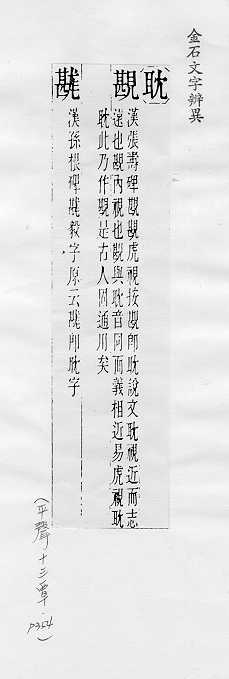 金石文字辨異
耽
覘 漢張壽碑覘覘虎視按覘即耽說文耽視近而志
遠也覘內視也覘與耽音同而義相近易虎視耽
耽此乃作覘是古人固通用矣
漢孫根碑毅字原云即耽字
(平聲十三覃.
P354)